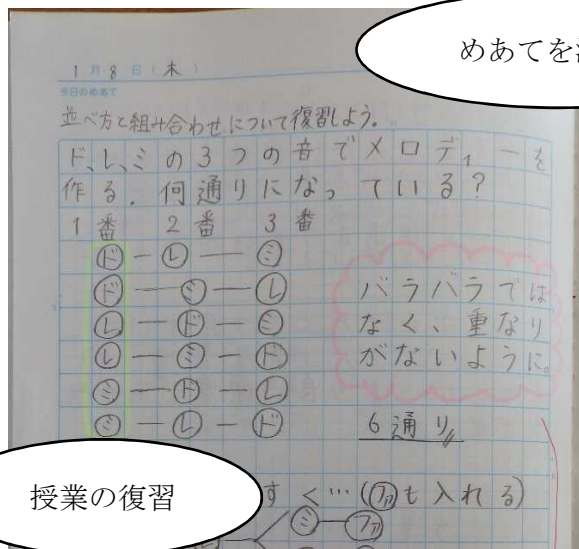 めあてを
1月8日(木)
今日のめあて
並べ方と組み合わせについて復習しよう。
ド、レ、ミの3つの音でメロディーを
作る.何通りになっている?
1番 2番 3番
ド―レ―ミ
ド―ミ―レ
レ―ド―ミ
レ―ミ―ド
ミ―ド―レ
ミ―レ―ド
バラバラでは
なく、重なり
がないように。
6通り
授業の復習
すく…(ファも入れる)
ミ―ファ